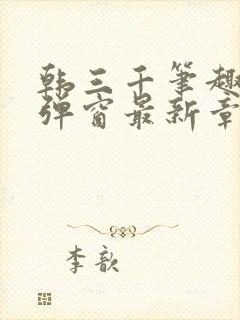 韩三千笔趣
弹窗最新章
李歆